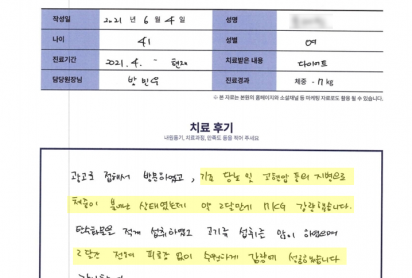 작성일 2021 년 6 월 4 일 성명
나이 41 성별 여
진료기간 2021. 4. - 현재 치료받은 내용 다이어트
담당원장님 방민우 진료경과 체중 - 17kg
※ 본 자료는 본원의 홈페이지와 소셜채널 등 마케팅 자료로도 활용 될 수 있습니다.
치료 후기
내원동기, 치료과정, 만족도 등을 적어 주세요
광고로 접해서 방문하였고, 기존 당뇨 및 고혈압 등의 지병으로
체중이 불어난 상태였는데 약 2달만에 17KG 감량했습니다.
탄수화물은 적게 섭취하였고 고기류 섭취는 많이 하였으며
2달간 전혀 피로감 없이 수월하게 감량에 성공했습니다